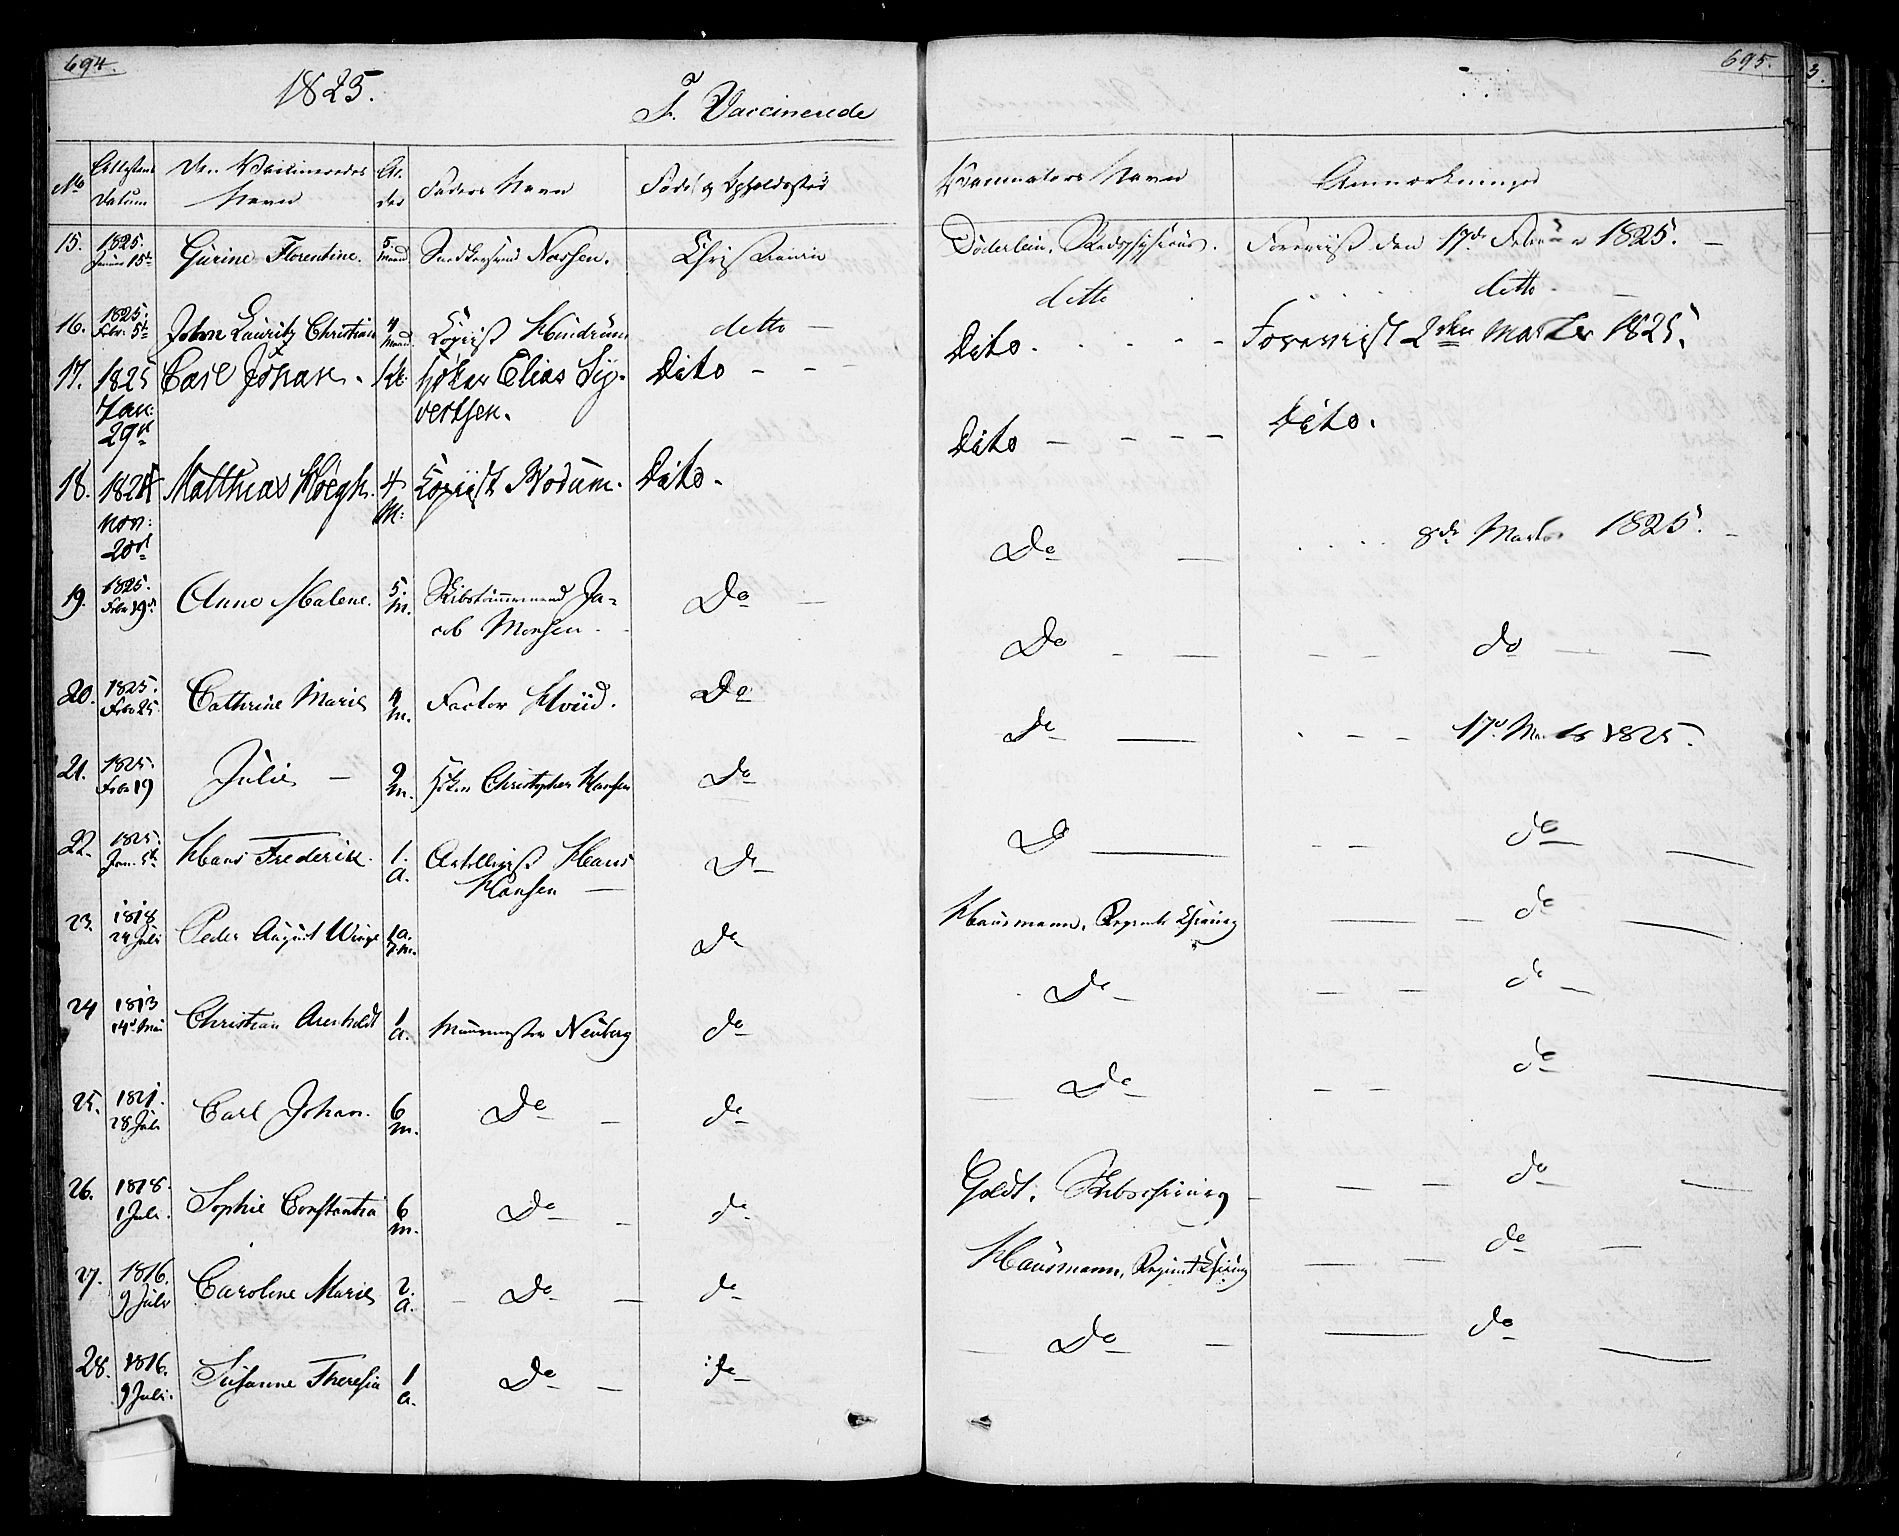 694.
1825.
F. Vaccinerede
No
Attestens Datum
Den Vaccineredes Navn
Al- der
Faders Navn
Føde- og Opholdssted
15. 1825. Januar 15de Gurine Florentine. 5. Maand Nassen. Christiania
16. 1825. Febr. 5te Johan Lauritz Christian 4 Maand Copiist ditto —
17. 1825 Jan: 29de Carl Johan. Høker Elias Sig-
vertsen. Dito - - -
18. 1824 Nov: 20de Matthias Høegh. 4 M: Copiist Bodum. Dito.
19. 1825. Febr 19de Anne Malene. 5. m. Skibstømmermand Ja-
cob Monsen. Do —
20. 1825. Febr 25 Cathrine Marie 4 m. Factor Do
21. 1825. Febr 19 Julie — 9 m. Høker Christopher Hansen Do
22. 1825. Jan. 5te Hans Frederik. 1. a. Artillerist Hans
Hansen — Do
23. 1818 24 Juli Peder August Winge 1a. 7m. Do
24 1813 14de Mai Christian Arenholdt 1 a. Muurmester Neuberg do
25. 1821. 28 Juli Carl Johan. 6 m. Do — do
26. 1818. 1 Juli. Sophie Constantia 6 m. Do — do
27. 1816. 9 Juli Caroline Marie 2. a. Do — do
28. 1816. 9 Juli. Susanne Theresia 1 a. Do — do
695.
Vaccinators Navn
Anmærkninger
Døderlein, Stadsphysicus. Foreviist den 17de Februar 1825. —
ditto ditto —
Dito. - - - Foreviist 2den Marts 1825.
Dito - - - - Dito.
Do — 8de Marts 1825. —
Do - — do —
Do — 17de Marts 1825.
Do — do —
Hausmann, Regiments Chirurg — do —
Do — do —
Do — do —
Goldt, Skibschirurg — do —
Hausmann, Regiment Chirurg — do —
Do — do —